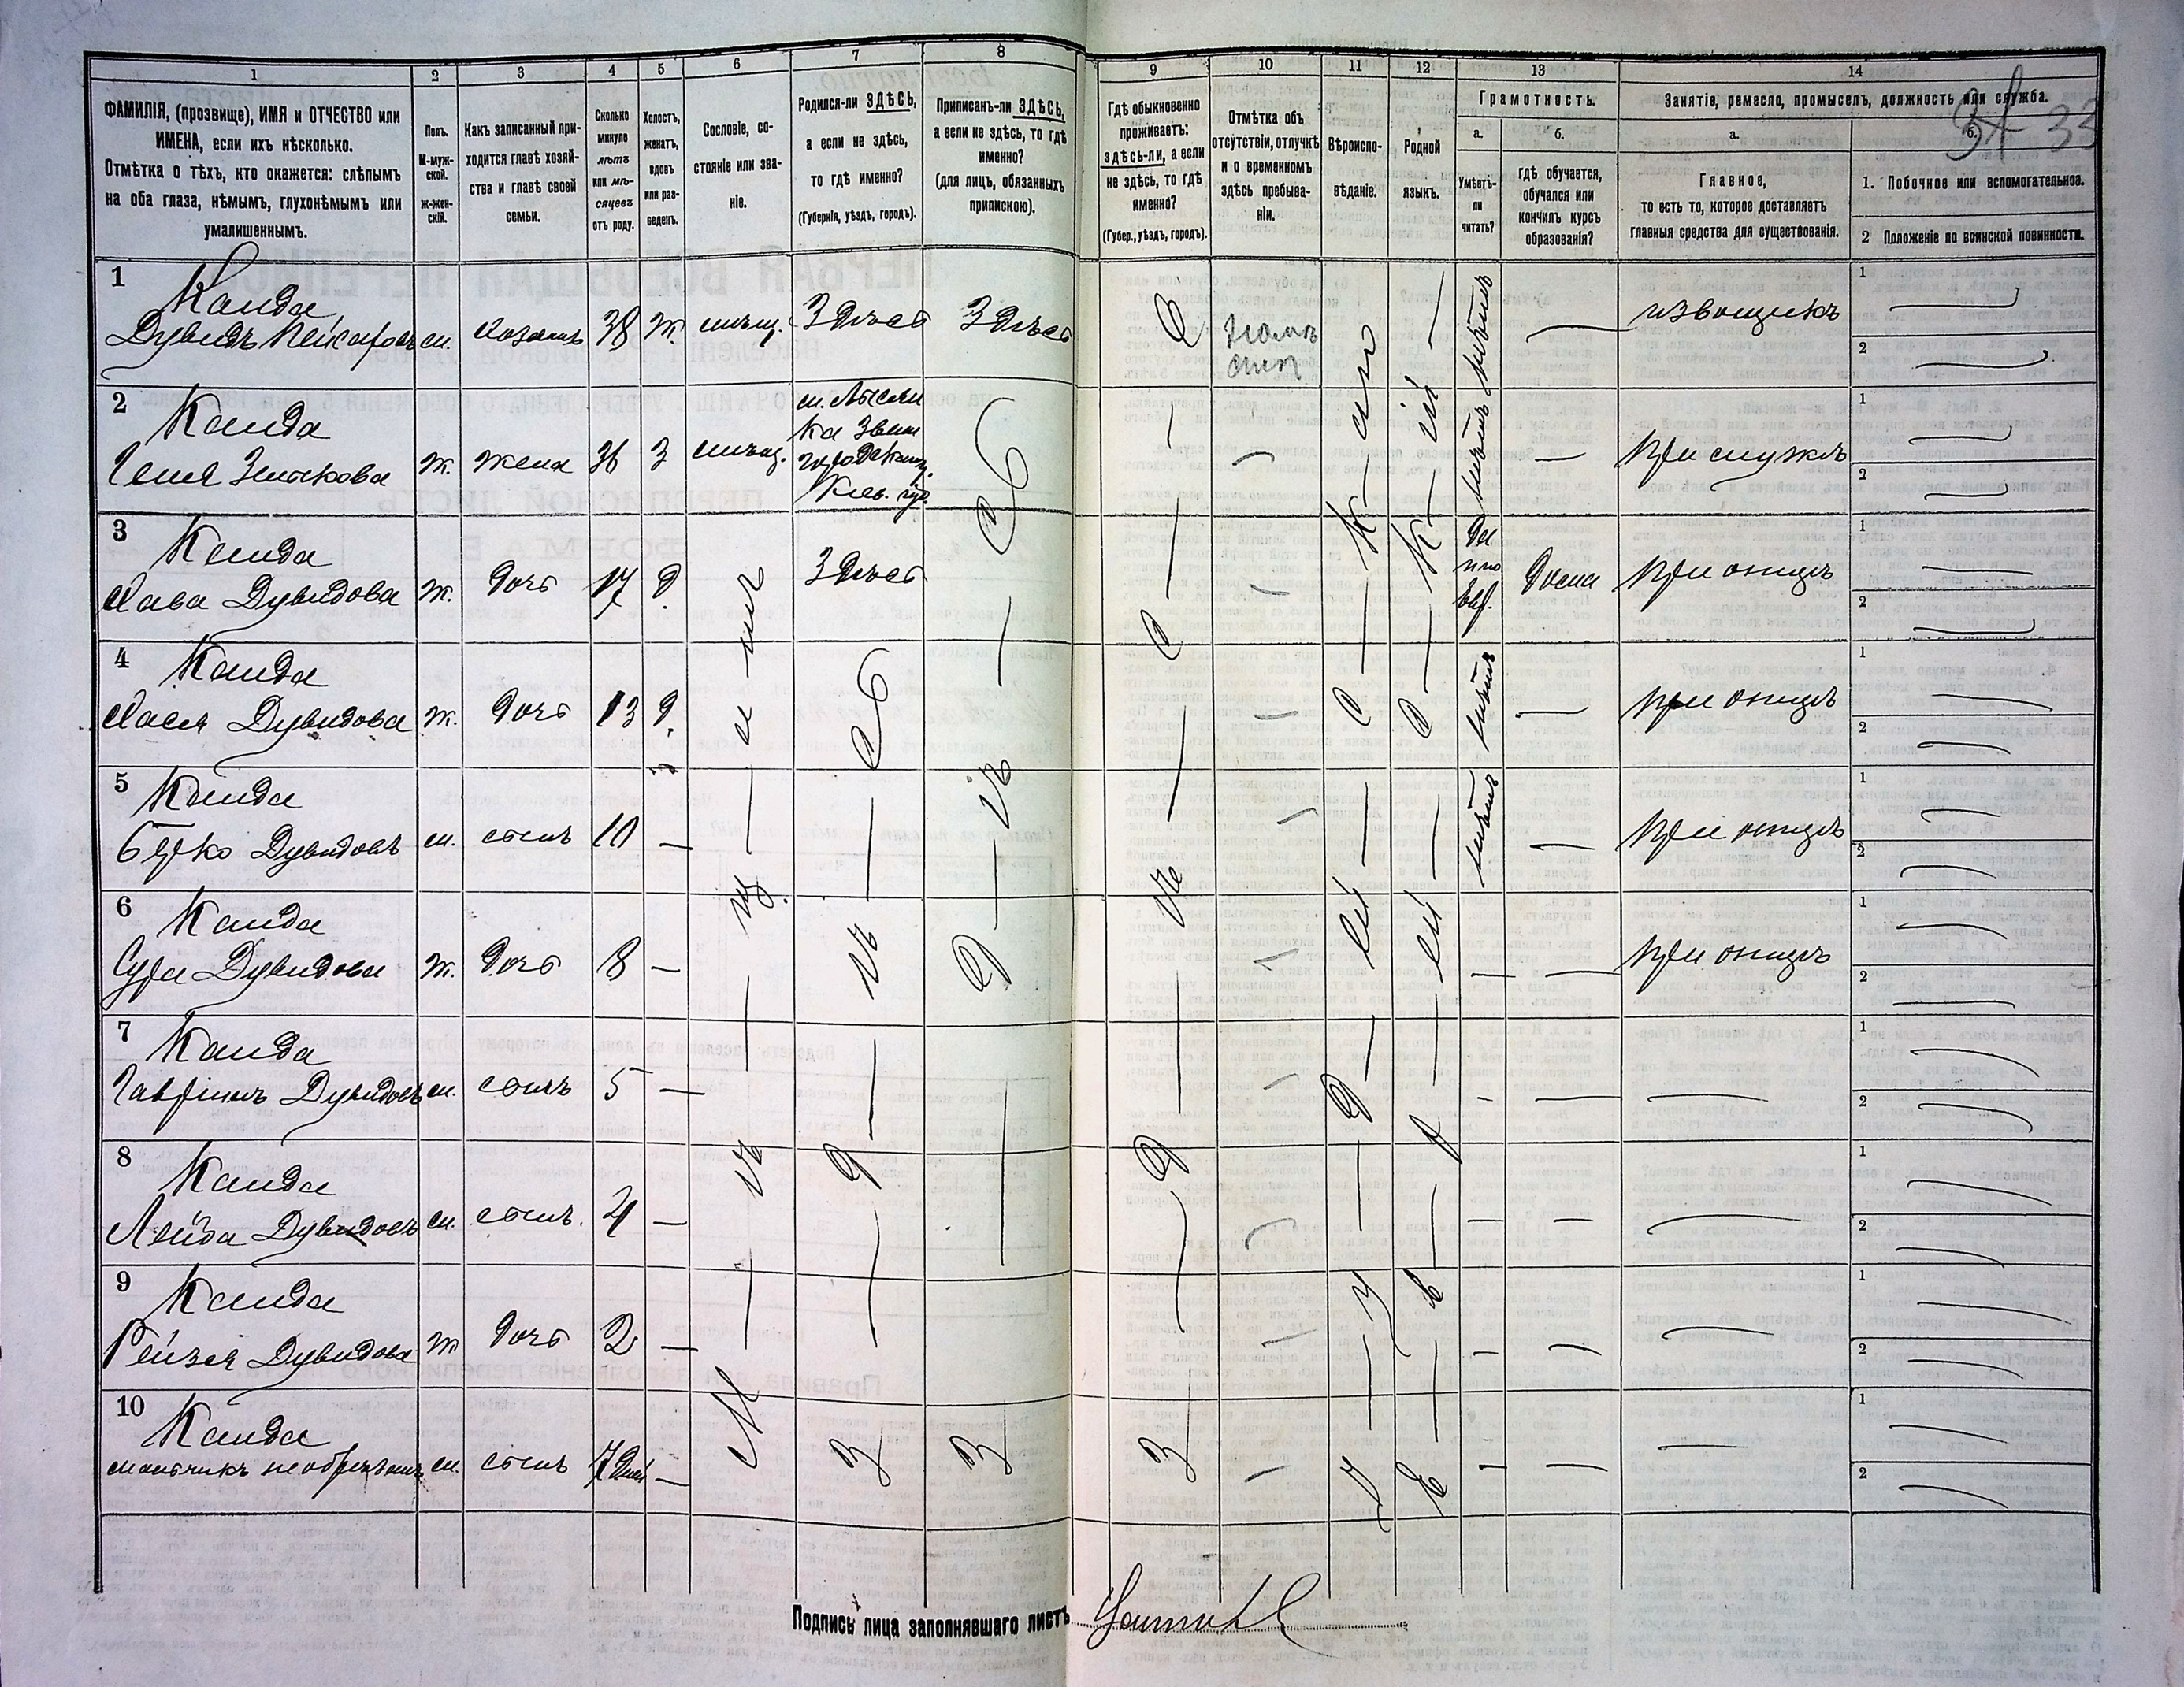 1
2
3
4
5
6
7
8
9
10
11
12
13
14
ФАМИЛІЯ, (прозвище), ИМЯ и ОТЧЕСТВО или
ИМЕНА, если ихъ нѣсколько.
Отмѣтка о тѣхъ, кто окажется: слѣпымъ
на оба глаза, нѣмымъ, глухонѣмымъ или
умалишеннымъ.
Полъ.
М-муж-
ской.
ж-жен-
скій.
Какъ записанный при-
ходится главѣ хозяй-
ства и главѣ своей
семьи.
Сколько
минуло
лѣтъ
или мѣ-
сяцевъ
отъ роду.
Холостъ,
женатъ,
вдовъ
или раз-
веденъ.
Сословіе, со-
стояніе или зва-
ніе.
Родился-ли ЗДѢСЬ,
а если не здѣсь,
то гдѣ именно?
(Губернія, уѣздъ, городъ).
Приписанъ-ли ЗДѢСЬ,
а если не здѣсь, то гдѣ
именно?
(для лицъ, обязанныхъ
припискою).
Гдѣ обыкновенно
проживаетъ:
здѣсь-ли, а если
не здѣсь, то гдѣ
именно?
(Губер., уѣздъ, городъ).
Отмѣтка объ
отсутствіи, отлучкѣ
и о временномъ
здѣсь пребыва-
ніи.
Вѣроиспо-
вѣданіе.
Родной
языкъ.
Грамотность.
а.
б.
Умѣетъ-
ли
читать?
гдѣ обучается,
обучался или
кончилъ курсъ
образованія?
Занятіе, ремесло, промыселъ, должность или служба.
33
а.
б.
Главное,
то есть то, которое доставляетъ
главныя средства для существованія.
1. Побочное или вспомогательное.
2 Положеніе по воинской повинности.
1
Канда
Дувидъ м. хозяинъ 38 Ж. мѣщ. Здѣсь Здѣсь нѣтъ извощикъ
1
2
2
Канда
ж. жена 36 З мѣщ. Кіев. губ. нѣтъ при мужѣ
1
2
3
Канда
Хава Дувидова ж. дочь 17 д. Здѣсь да дома при отцѣ
1
2
4
Канда
Хася Дувидова ж. дочь 13 д. нѣтъ при отцѣ
1
2
5
Канда
Берко Дувидовъ м. сынъ 10 — нѣтъ — при отцѣ
1
2
6
Канда
Сура Дувидова ж. дочь 8 — при отцѣ
1
2
7
Канда
Гавріилъ Дувидовъ м. сынъ 5 —
1
2
8
Канда
Лейба Дувидовъ м. сынъ. 4 —
1
2
9
Канда
Рейзя Дувидова ж дочь 2 —
1
2
10
Канда
мальчикъ необрѣзанъ м. сынъ 7 дней —
1
2
Мѣщане
Здѣсь
Здѣсь
Здѣсь
Іудейское
Еврейскій
Подпись лица заполнявшаго листъ